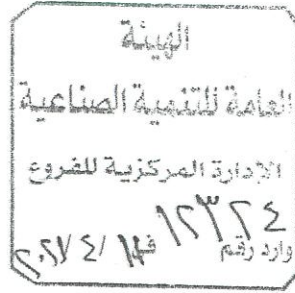 الهيئة
العامة للتنمية الصناعية
الإدارة المركزية للفروع
وارد رقم ١٢٣٢٤ في / ٤ /